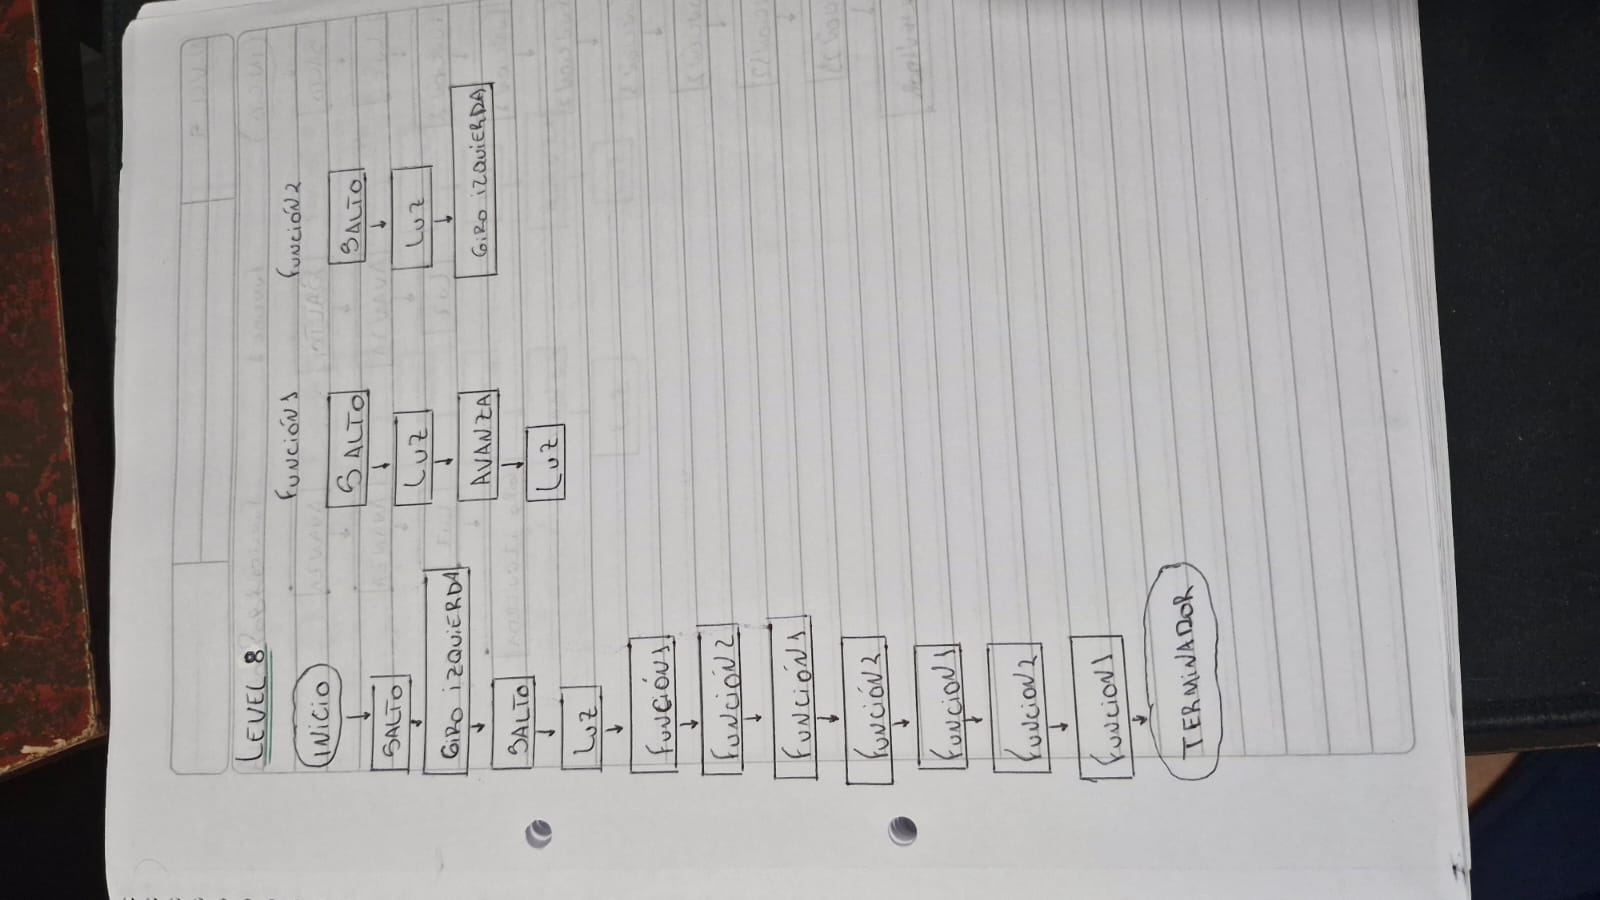 LEVEL 8
INICIO
SALTO
GIRO IZQUIERDA
SALTO
LUZ
FUNCIÓN1
FUNCIÓN2
FUNCIÓN1
FUNCIÓN2
FUNCION1
FUNCION2
FUNCION1
TERMINADOR
FUNCIÓN1
SALTO
LUZ
AVANZA
LUZ
FUNCIÓN2
SALTO
LUZ
GIRO IZQUIERDA